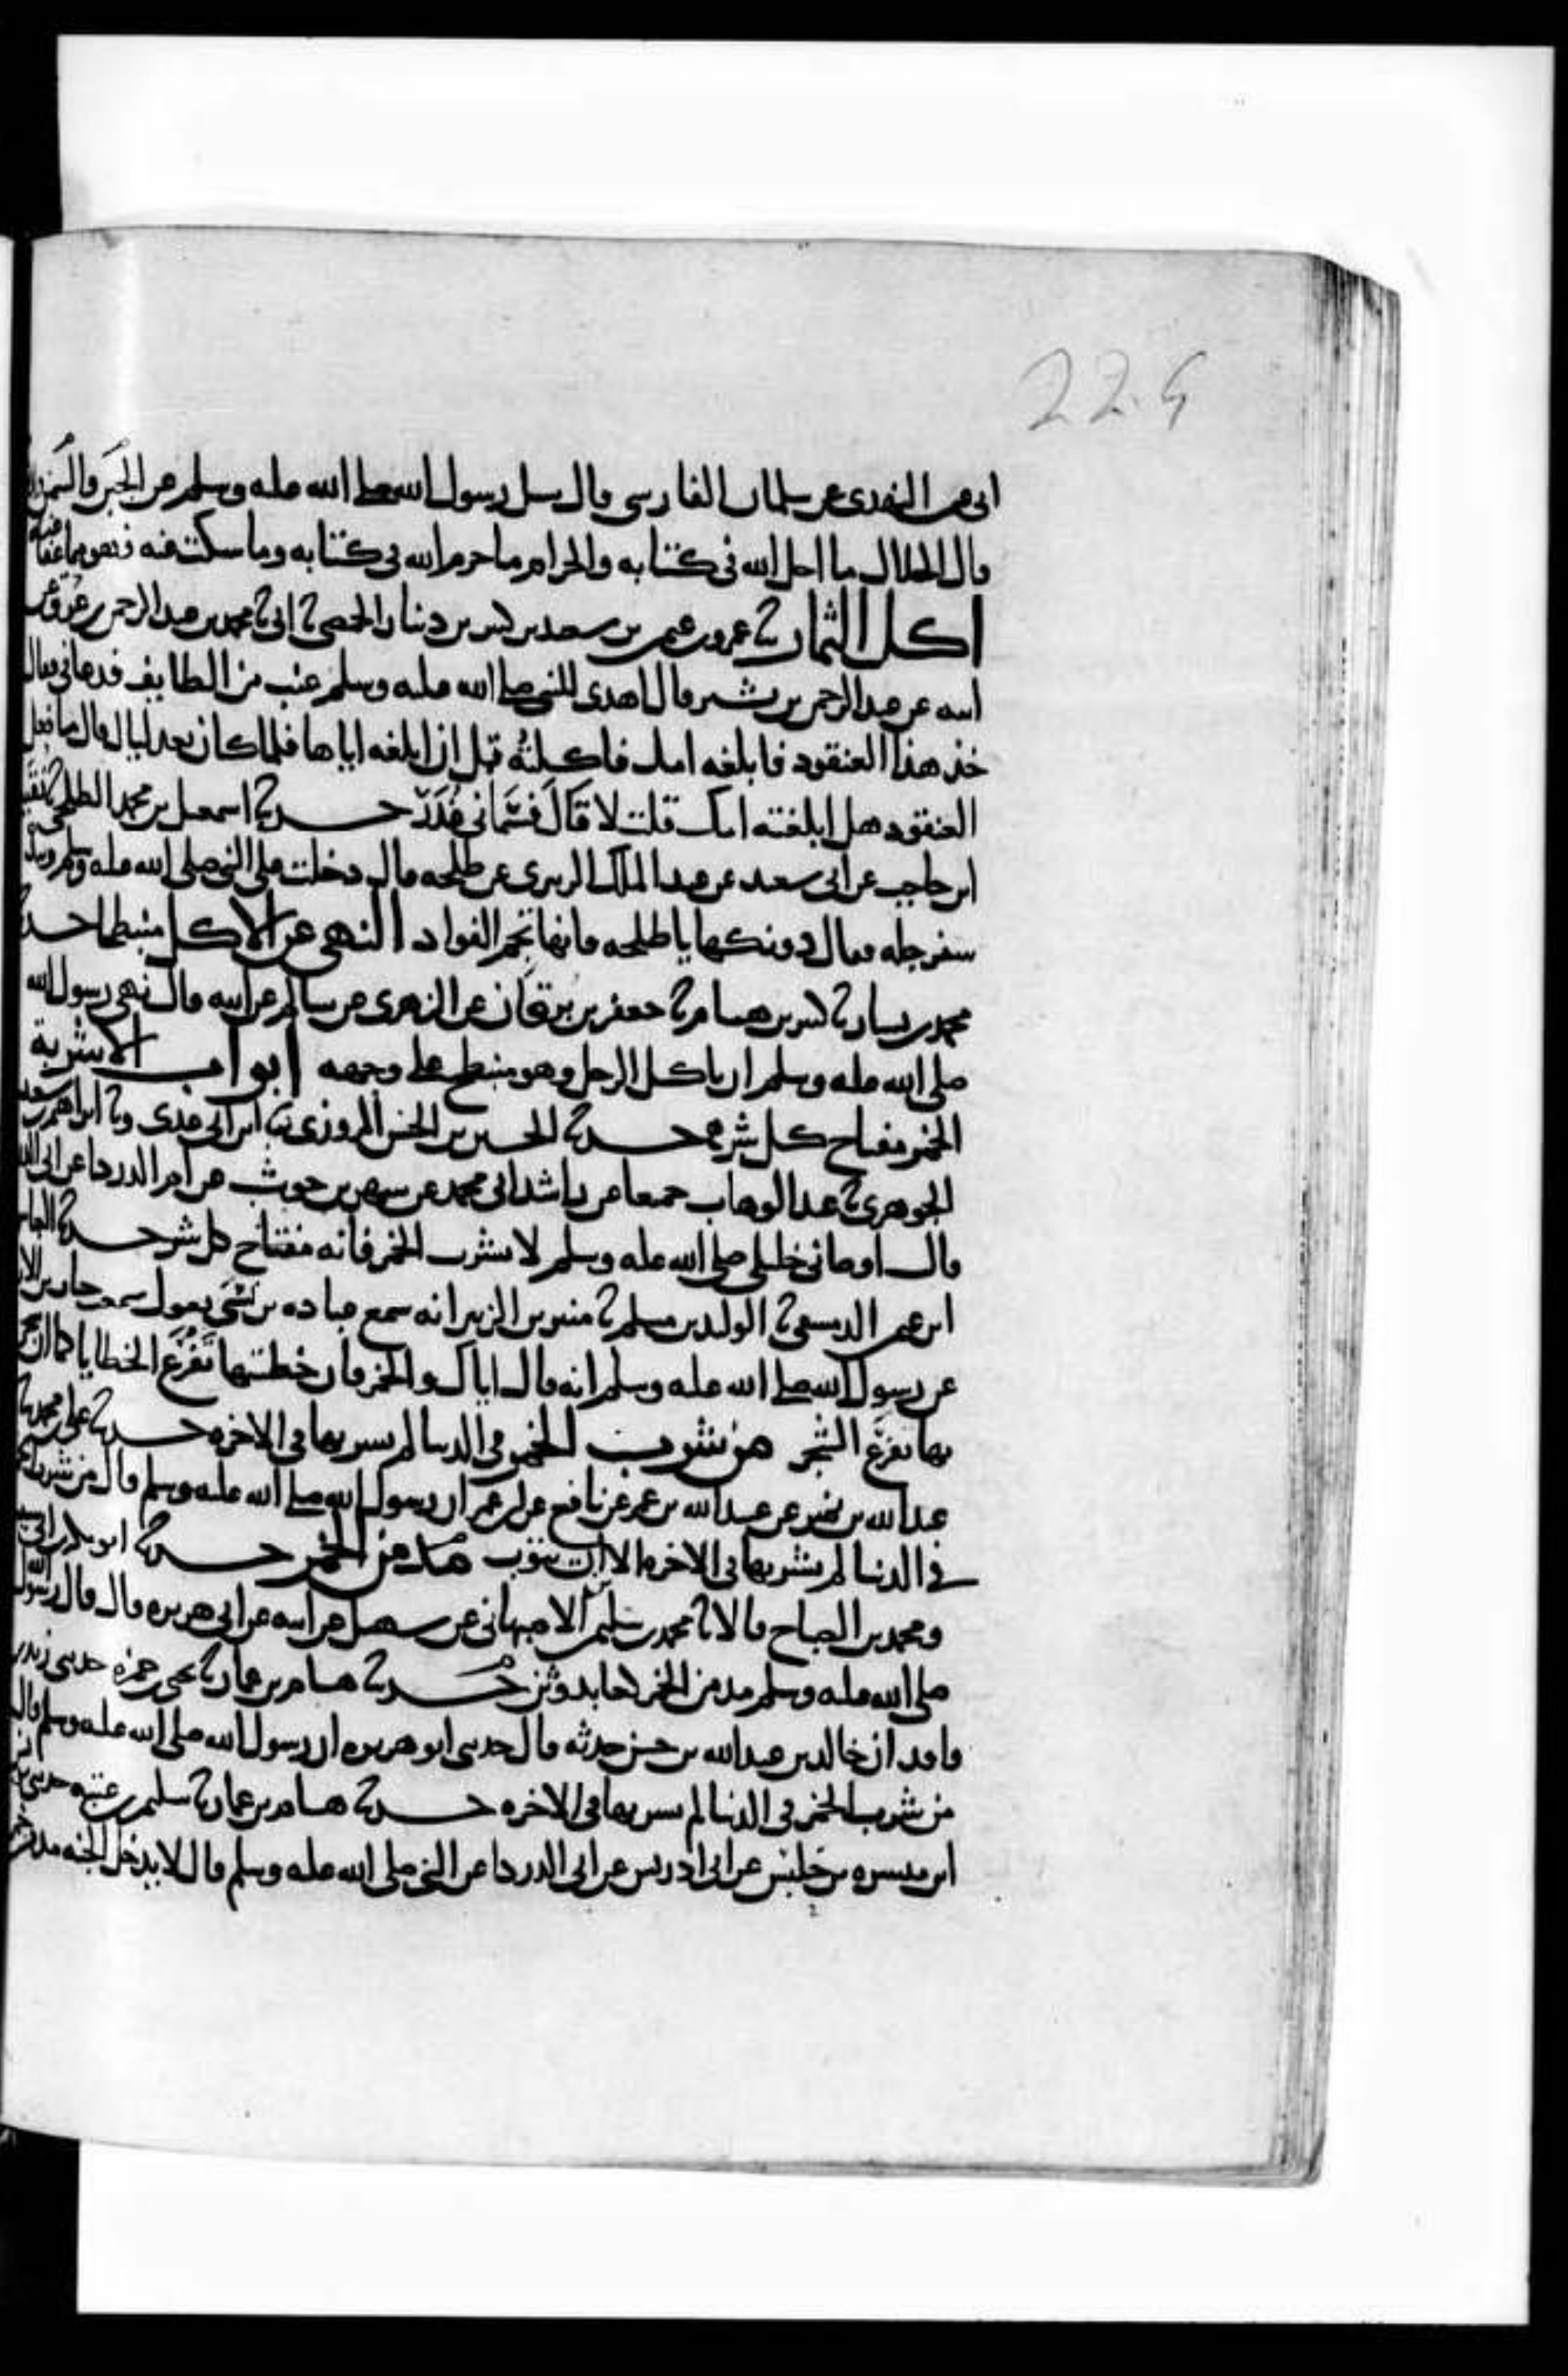 224
ابى عثمن النهدى عن سلمان الفارسى قال سيل رسول الله صلى الله عليه وسلم عن الجبن والسمن
قال الحلال ما احل الله فى كتابه والحرام ما حرم الله فى كتابه وما سكت عنه فهو مما عفا عنه
اكل الثمار ثنا عمرو بن عثمن بن سعيد بن كثير بن دينار الحمصى ثنا ابى ثنا محمد بن عبد الرحمن بن عرق عن
ابيه عن عبد الرحمن بن بشير قال اهدى للنبى صلى الله عليه وسلم عنب من الطايف فدعانى فقال
خذ هذا العنقود فابلغه امك فاكلته قبل ان ابلغه اياها فلما كان بعد ليال قال ما فعل
العنقود هل ابلغته امك قلت لا قال فسمانى غدر حدثنا اسمعيل بن محمد الطلحى ثنا نقيب
ابن حاجب عن ابى سعيد عن عبد الملك الزبيرى عن طلحه قال دخلت على النبى صلى الله عليه وسلم وبيده
سفرجله فقال دونكها يا طلحه فانها تجم الفواد النهى عن الاكل منبطحا حدثنا
محمد بن بشار ثنا كثير بن هشام ثنا جعفر بن برقان عن الزهرى عن سالم عن ابيه قال نهى رسول الله
صلى الله عليه وسلم ان ياكل الرجل وهو منبطح على وجهه ابواب الاشربة
الخمر مفتاح كل شر حدثنا الحسين بن الحسن المروزى ثنا ابن ابى عدى وثنا ابراهيم بن سعيد
الجوهرى ثنا عبد الوهاب جميعا عن راشد ابى محمد عن شهر بن حوشب عن ام الدردا عن ابى الدردا
قال اوصانى خليلى صلى الله عليه وسلم لا تشرب الخمر فانه مفتاح كل شر حدثنا العباس
ابن عثمن الدمشقى ثنا الوليد بن مسلم ثنا منير بن الزبير انه سمع عباده بن نسى يقول سمعت خباب بن الارت
عن رسول الله صلى الله عليه وسلم انه قال اياك والخمر فان خطيتها تفرع الخطايا كما ان شجرتها
بها تفرع الشجر من شرب الخمر فى الدنيا لم يشربها فى الاخره حدثنا على بن محمد ثنا
عبد الله بن نمير عن عبيد الله بن عمر عن نافع عن ابن عمر ان رسول الله صلى الله عليه وسلم قال من شرب الخمر
فى الدنيا لم يشربها فى الاخره الا ان يتوب مدمن الخمر حدثنا ابو بكر بن ابى شيبه
ومحمد بن الصباح قالا ثنا محمد بن سليمن الاصبهانى عن سهيل عن ابيه عن ابى هريره قال قال رسول الله
صلى الله عليه وسلم مدمن الخمر كعابد وثن حدثنا هشام بن عمار ثنا يحيى بن حمزه حدثنى زيد بن
واقد ان خالد بن عبد الله بن حسين حدثه قال حدثنى ابو هريره ان رسول الله صلى الله عليه وسلم قال
من شرب الخمر فى الدنيا لم يشربها فى الاخره حدثنا هشام بن عمار ثنا سليمن بن عتبه حدثنى يونس
ابن ميسره بن حلبس عن ابى ادريس عن ابى الدردا عن النبى صلى الله عليه وسلم قال لا يدخل الجنه مدمن خمر